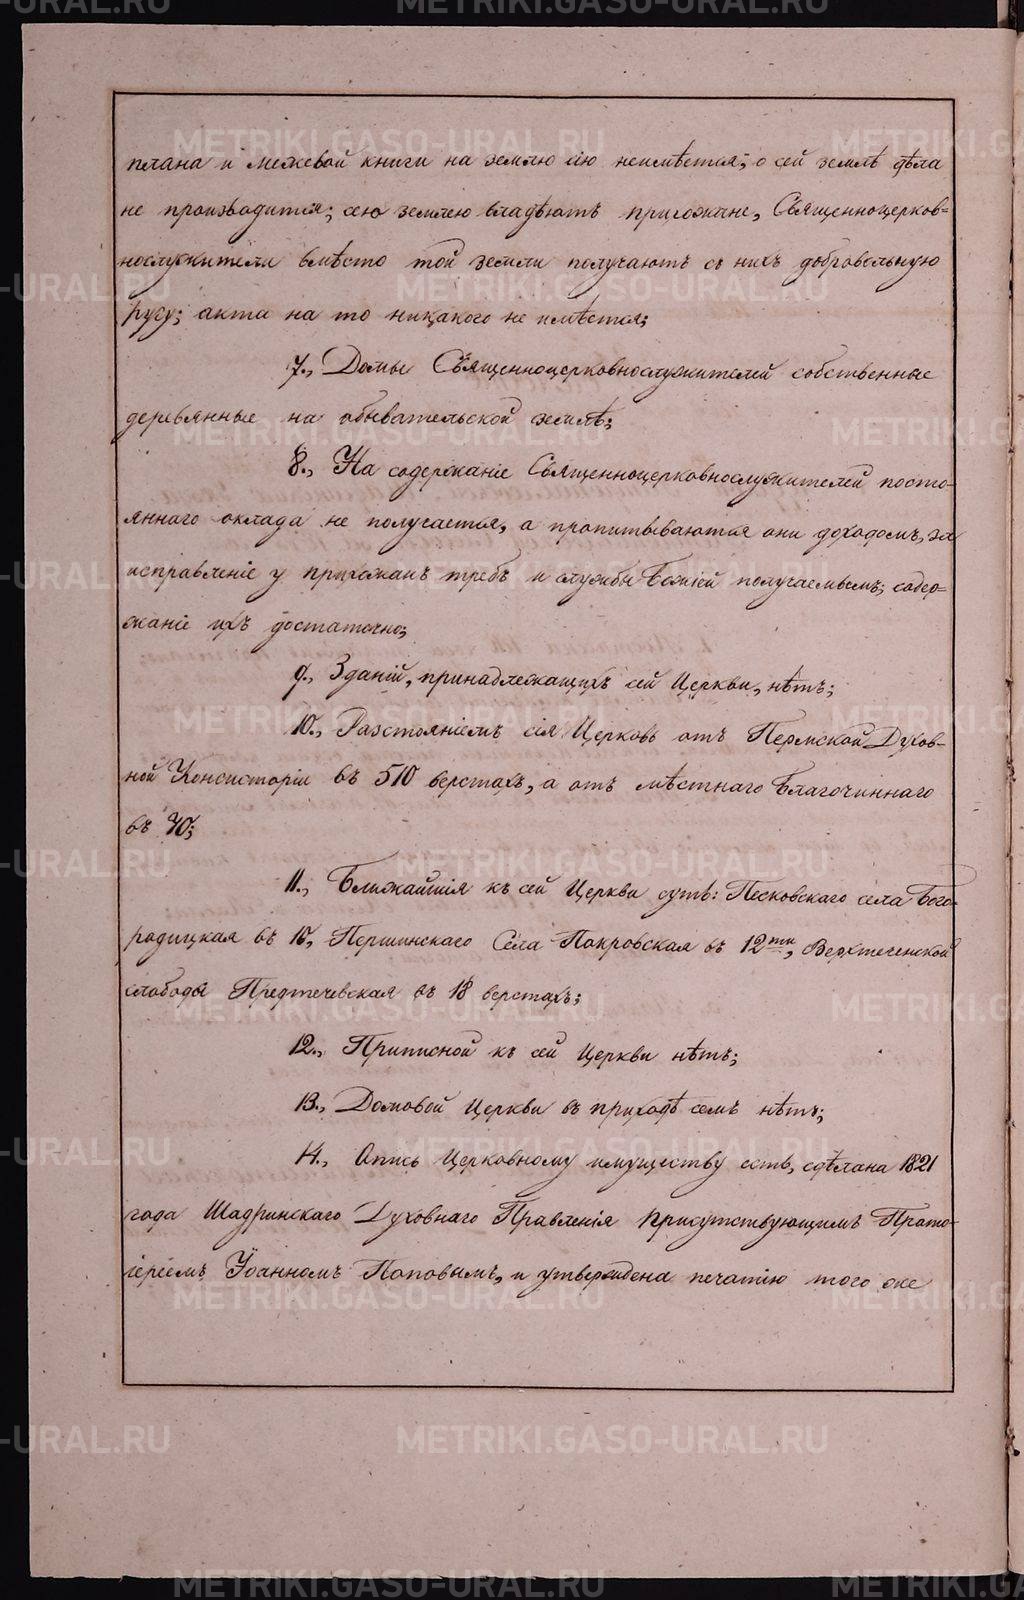 плана и межевой книги на землю сію неимѣется; о сей землѣ дѣла
не производится; сею землею владѣютъ прихожане, Священноцерков=
нослужители вмѣсто той земли получаютъ съ нихъ добровольную
ругу; акта на то никакого не имѣется;
7., Домы Священноцерковнослужителей собственные
деревянные на обывательской землѣ;
8., На содержаніе Священноцерковнослужителей посто-
яннаго оклада не получается, а пропитываются они доходомъ, за
исправленіе у прихожанъ требъ и службы Божіей получаемымъ; содер=
жаніе ихъ достаточно;
9., Зданій, принадлежащихъ сей Церкви, нѣтъ;
10., Разстояніемъ сія Церковь отъ Пермской Духов-
ной Консисторіи въ 510 верстахъ, а отъ мѣстнаго Благочиннаго
въ
11., Ближайшія къ сей Церкви суть: Песковскаго села Бого-
родицкая въ 10, Першинскаго Села Покровская въ 12ти, Верхтеченской
слободы Предтечевская въ 18 верстахъ;
12., Приписной къ сей Церкви нѣтъ;
13., Домовой Церкви въ приходѣ семъ нѣтъ;
14., Опись Церковному имуществу есть, сдѣлана 1821
года Шадринскаго Духовнаго Правленія присутствующимъ Прото-
іереемъ Іоанномъ Поповымъ, и утверждена печатію того же
METRIKI.GASO-URAL.RU